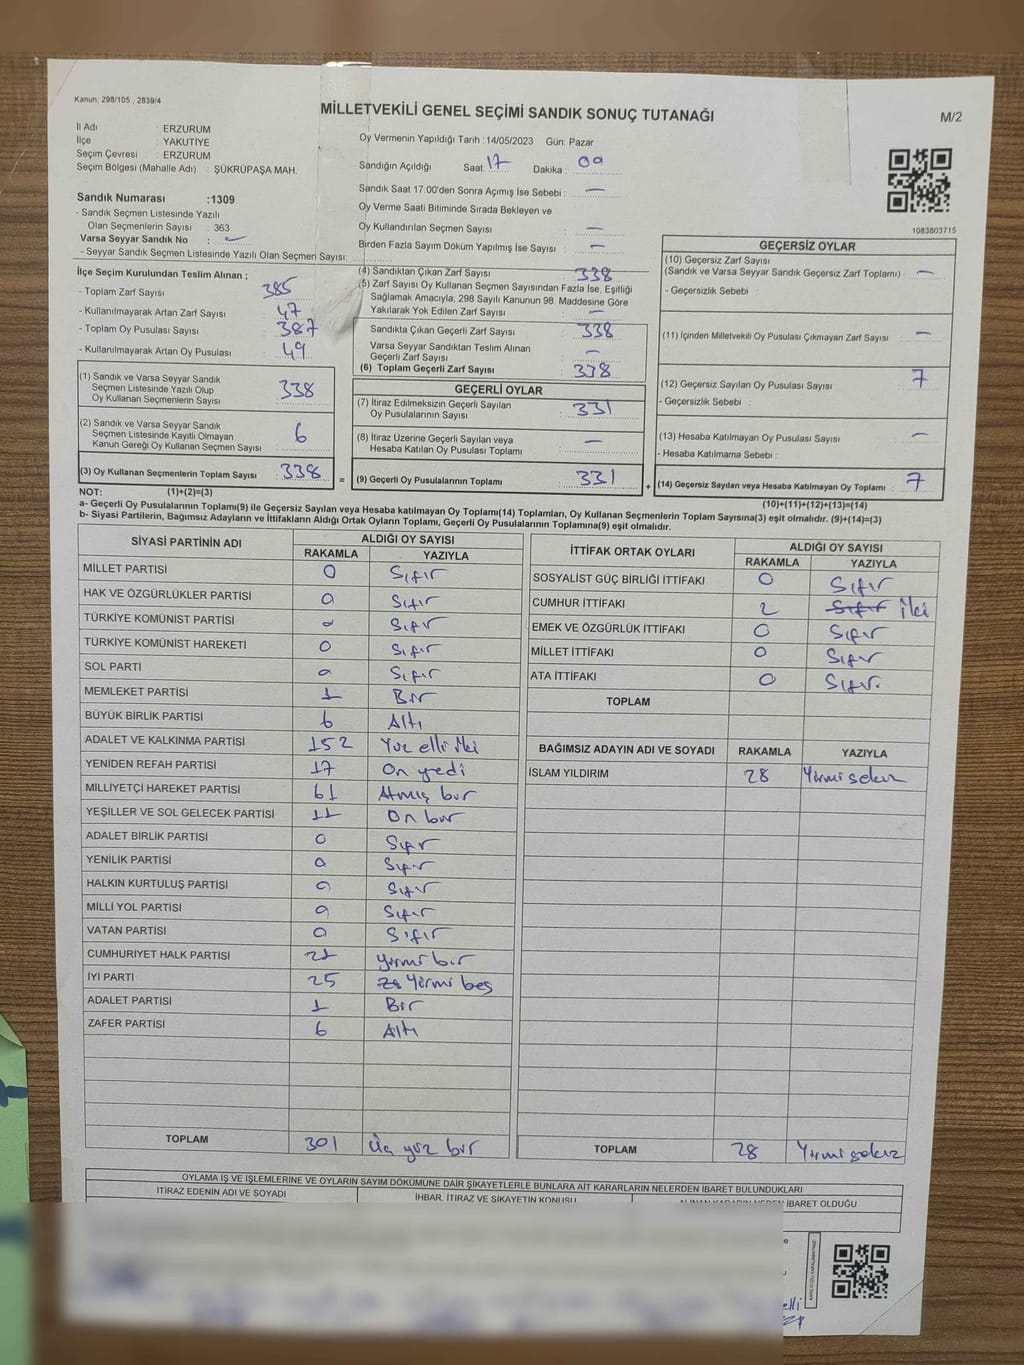 Kanun: 298/105 , 2839/4
MİLLETVEKİLİ GENEL SEÇİMİ SANDIK SONUÇ TUTANAĞI
M/2
İl Adı : ERZURUM
İlçe : YAKUTİYE
Seçim Çevresi : ERZURUM
Seçim Bölgesi (Mahalle Adı) : ŞÜKRÜPAŞA MAH.
Sandık Numarası :1309
- Sandık Seçmen Listesinde Yazılı
Olan Seçmenlerin Sayısı : 363
Varsa Seyyar Sandık No : —
- Seyyar Sandık Seçmen Listesinde Yazılı Olan Seçmen Sayısı:
Oy Vermenin Yapıldığı Tarih :14/05/2023 Gün: Pazar
Sandığın Açıldığı Saat: 17 Dakika : 00
Sandık Saat 17.00'den Sonra Açımış İse Sebebi : —
Oy Verme Saati Bitiminde Sırada Bekleyen ve
Oy Kullandırılan Seçmen Sayısı : —
Birden Fazla Sayım Döküm Yapılmış İse Sayısı : —
1083803715
İlçe Seçim Kurulundan Teslim Alınan ;
- Toplam Zarf Sayısı : 385
- Kullanılmayarak Artan Zarf Sayısı : 47
- Toplam Oy Pusulası Sayısı : 387
- Kullanılmayarak Artan Oy Pusulası : 49
(1) Sandık ve Varsa Seyyar Sandık
Seçmen Listesinde Yazılı Olup
Oy Kullanan Seçmenlerin Sayısı : 338
(2) Sandık ve Varsa Seyyar Sandık
Seçmen Listesinde Kayıtlı Olmayan
Kanun Gereği Oy Kullanan Seçmen Sayısı : 6
(3) Oy Kullanan Seçmenlerin Toplam Sayısı : 338
(4) Sandıktan Çıkan Zarf Sayısı : 338
(5) Zarf Sayısı Oy Kullanan Seçmen Sayısından Fazla İse, Eşitliği
Sağlamak Amacıyla, 298 Sayılı Kanunun 98. Maddesine Göre
Yakılarak Yok Edilen Zarf Sayısı : —
Sandıkta Çıkan Geçerli Zarf Sayısı : 338
Varsa Seyyar Sandıktan Teslim Alınan
Geçerli Zarf Sayısı : —
(6) Toplam Geçerli Zarf Sayısı : 338
GEÇERLİ OYLAR
(7) İtiraz Edilmeksizin Geçerli Sayılan
Oy Pusulalarının Sayısı : 331
(8) İtiraz Üzerine Geçerli Sayılan veya
Hesaba Katılan Oy Pusulası Toplamı : —
= (9) Geçerli Oy Pusulalarının Toplamı : 331
GEÇERSİZ OYLAR
(10) Geçersiz Zarf Sayısı
(Sandık ve Varsa Seyyar Sandık Geçersiz Zarf Toplamı) : —
- Geçersizlik Sebebi :
(11) İçinden Milletvekili Oy Pusulası Çıkmayan Zarf Sayısı : —
(12) Geçersiz Sayılan Oy Pusulası Sayısı : 7
- Geçersizlik Sebebi :
(13) Hesaba Katılmayan Oy Pusulası Sayısı : —
- Hesaba Katılmama Sebebi :
+ (14) Geçersiz Sayılan veya Hesaba Katılmayan Oy Toplamı : 7
NOT: (1)+(2)=(3)
(10)+(11)+(12)+(13)=(14)
a- Geçerli Oy Pusulalarının Toplamı(9) ile Geçersiz Sayılan veya Hesaba katılmayan Oy Toplamı(14) Toplamları, Oy Kullanan Seçmenlerin Toplam Sayısına(3) eşit olmalıdır. (9)+(14)=(3)
b- Siyasi Partilerin, Bağımsız Adayların ve İttifakların Aldığı Ortak Oyların Toplamı, Geçerli Oy Pusulalarının Toplamına(9) eşit olmalıdır.
SİYASİ PARTİNİN ADI ALDIĞI OY SAYISI
RAKAMLA YAZIYLA
MİLLET PARTİSİ 0 Sıfır
HAK VE ÖZGÜRLÜKLER PARTİSİ 0 Sıfır
TÜRKİYE KOMÜNİST PARTİSİ 0 Sıfır
TÜRKİYE KOMÜNİST HAREKETİ 0 Sıfır
SOL PARTİ 0 Sıfır
MEMLEKET PARTİSİ 1 Bir
BÜYÜK BİRLİK PARTİSİ 6 Altı
ADALET VE KALKINMA PARTİSİ 152 Yüz elli iki
YENİDEN REFAH PARTİSİ 17 On yedi
MİLLİYETÇİ HAREKET PARTİSİ 61 Atmış bir
YEŞİLLER VE SOL GELECEK PARTİSİ 11 On bir
ADALET BİRLİK PARTİSİ 0 Sıfır
YENİLİK PARTİSİ 0 Sıfır
HALKIN KURTULUŞ PARTİSİ 0 Sıfır
MİLLİ YOL PARTİSİ 0 Sıfır
VATAN PARTİSİ 0 Sıfır
CUMHURİYET HALK PARTİSİ 21 Yirmi bir
İYİ PARTİ 25 Yirmi beş
ADALET PARTİSİ 1 Bir
ZAFER PARTİSİ 6 Altı
TOPLAM 301 Üç yüz bir
İTTİFAK ORTAK OYLARI ALDIĞI OY SAYISI
RAKAMLA YAZIYLA
SOSYALİST GÜÇ BİRLİĞİ İTTİFAKI 0 Sıfır
CUMHUR İTTİFAKI 2 Sıfır İki
EMEK VE ÖZGÜRLÜK İTTİFAKI 0 Sıfır
MİLLET İTTİFAKI 0 Sıfır
ATA İTTİFAKI 0 Sıfır.
TOPLAM
BAĞIMSIZ ADAYIN ADI VE SOYADI RAKAMLA YAZIYLA
İSLAM YILDIRIM 28 Yirmi sekiz
TOPLAM 28 Yirmi sekiz
OYLAMA İŞ VE İŞLEMLERİNE VE OYLARIN SAYIM DÖKÜMÜNE DAİR ŞİKAYETLERLE BUNLARA AİT KARARLARIN NELERDEN İBARET BULUNDUKLARI
İTİRAZ EDENİN ADI VE SOYADI İHBAR, İTİRAZ VE ŞİKAYETİN KONUSU ALINAN KARARIN NEDEN İBARET OLDUĞU